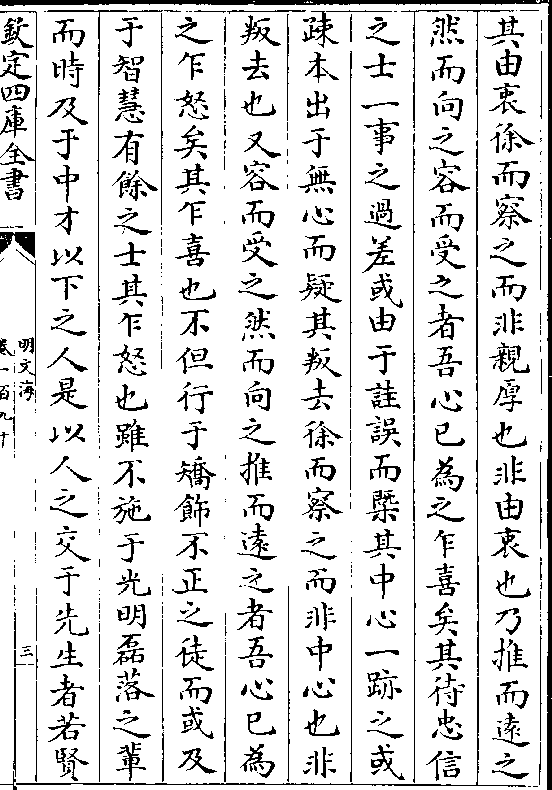 其由衷徐而察之而非親厚也非由衷也乃推而遠之
然而向之容而受之者吾心已為之乍喜矣其待忠信
之士一事之過差或由于詿誤而槩其中心一跡之或
踈本出于無心而疑其叛去徐而察之而非中心也非
叛去也又容而受之然而向之推而遠之者吾心已為
之乍怒矣其乍喜也不但行于矯飾不正之徒而或及
于智慧有餘之士其乍怒也雖不施于光明磊落之輩
而時及于中才以下之人是以人之交于先生者若賢
欽定四庫全書
明文海
卷一百九十
三